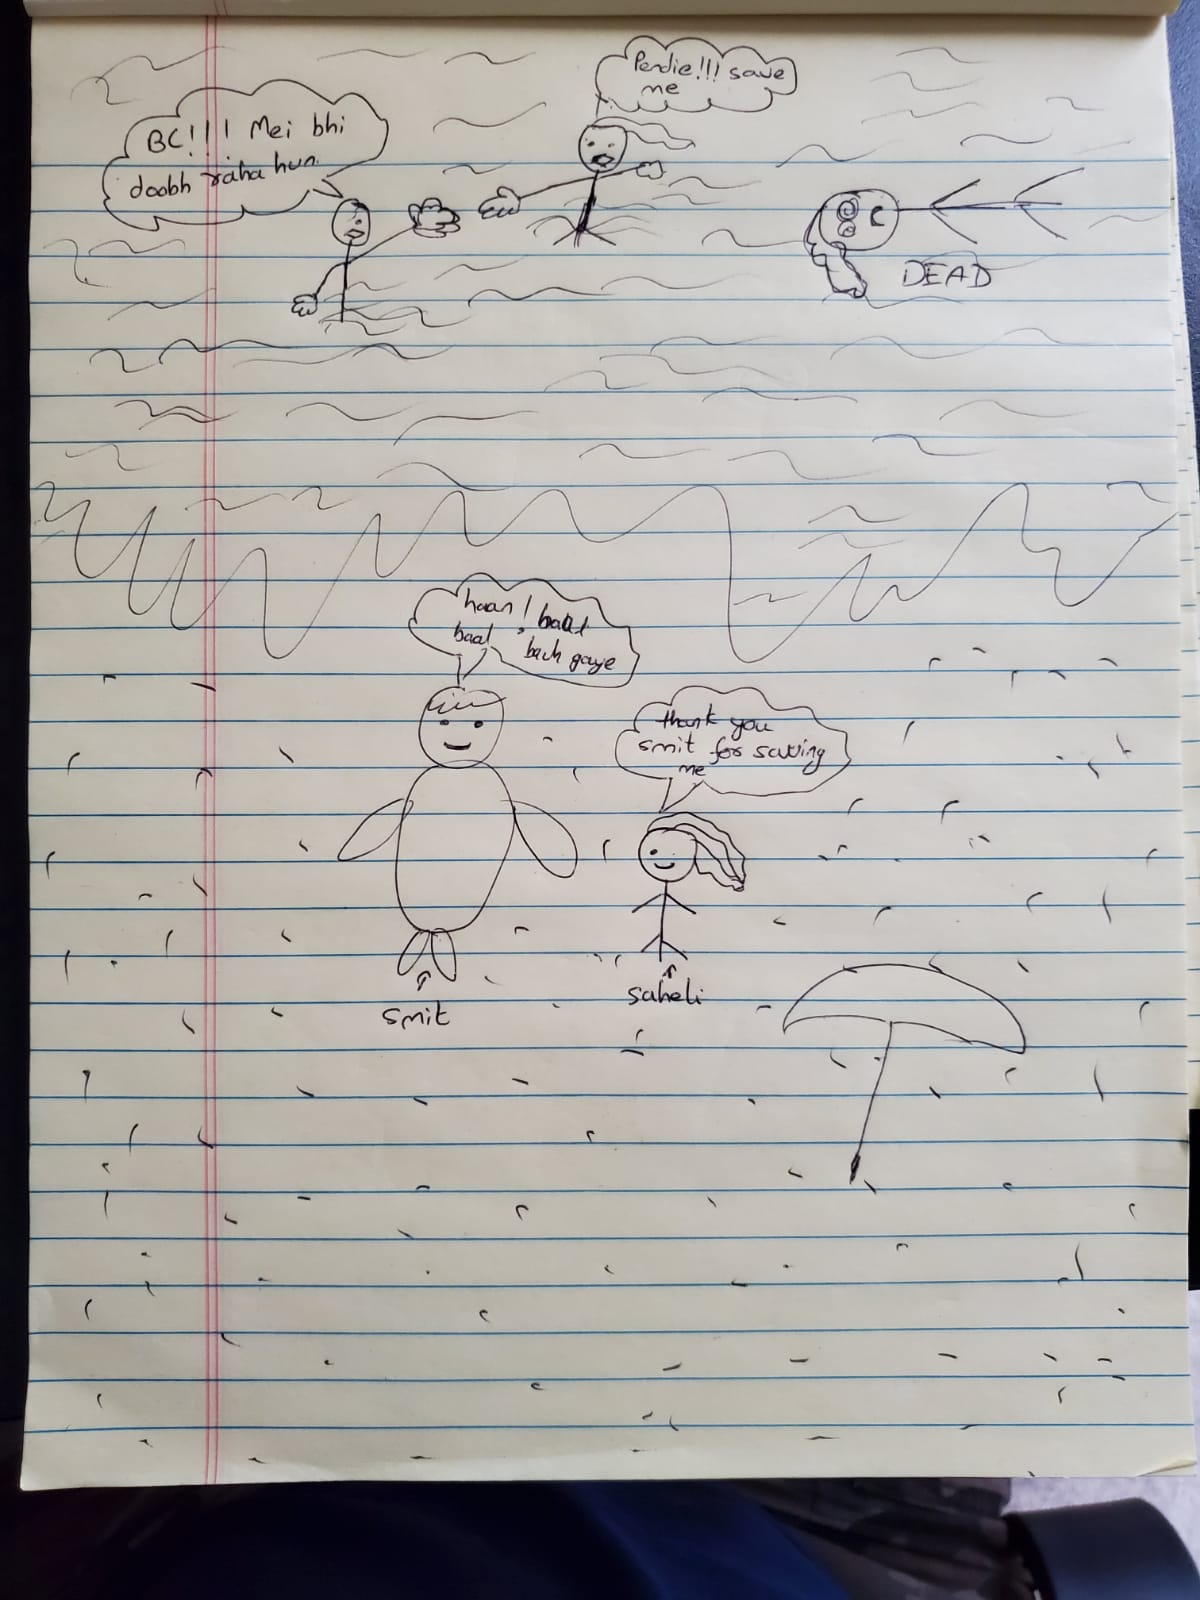 Pendie!!! save
me
BC!!! Mei bhi
doobh raha hun
DEAD
haan! baal
baal bach gaye
thank you
smit for saving
me
smit
saheli